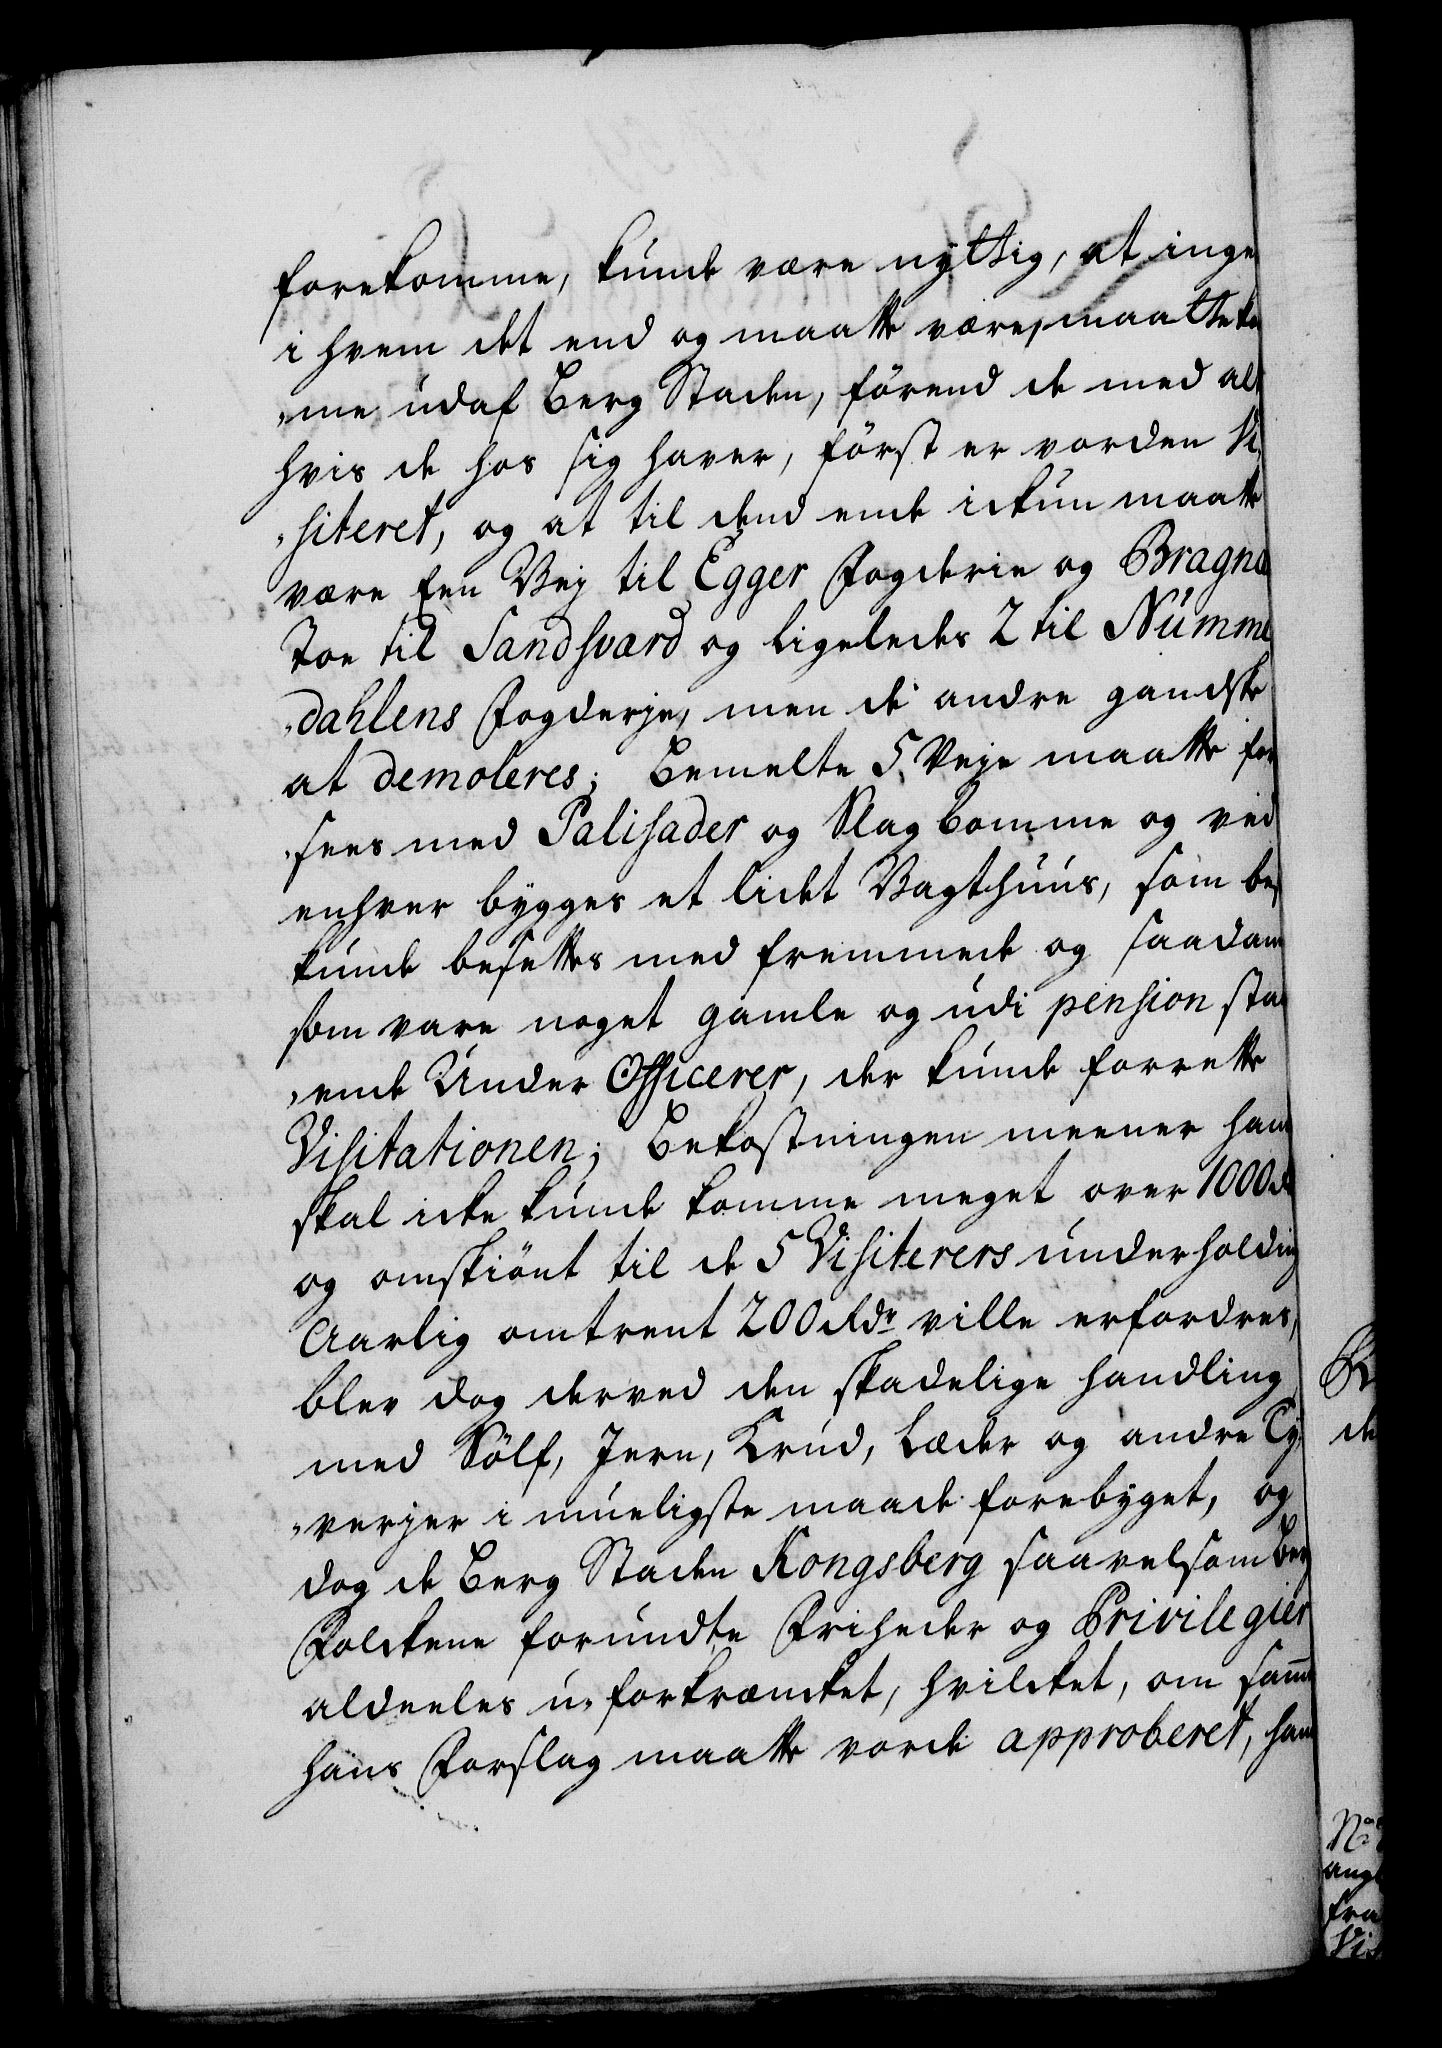 forekomme, kunde være nyttig, at inge
i hvem det end og maatte være, maatte ko
„me udaf Berg Staden, förend de med alt
hvis de hos sig haver, först er vorden Vi„
„siteret, og at til dend ende ickun maatte
være Een Vej til Egger Fogderie og Bragna
Toe til Sandsværd og ligeledes 2 til Numme
„dahlens Fogderje, men de andre gandske
at demoleres; Bemelte 5 Veje maatte for
„sees med Palisader og Slagbomme og ved
enhver bygges et lidet Vagthuus, som be„
kunde besettes med fremmede og saadan
som vare noget gamle og udi pension sta
„ende Under Officerer, der kunde forrette
Visitationen; Bekostningen meener han
skal icke kunde komme meget over 1000 R
og omskiönt til de 5 Visiterers underholdning
Aarlig omtrent 200 Rdr ville erfordres,
blev dog derved den skadelige handling
med Sölf, Jern, Krud, Læder og andre Ty„
„verjer i mueligste maade forebyget, og
dog de Berg Staden Kongsberg saavelsom Berg
Folckene forundte Friheder og Privilegier
aldeeles u„forkræncket, hvilcket, om samme
hans Forslag maatte vorde approberet, han
R
de
No
ang
fra
Vi